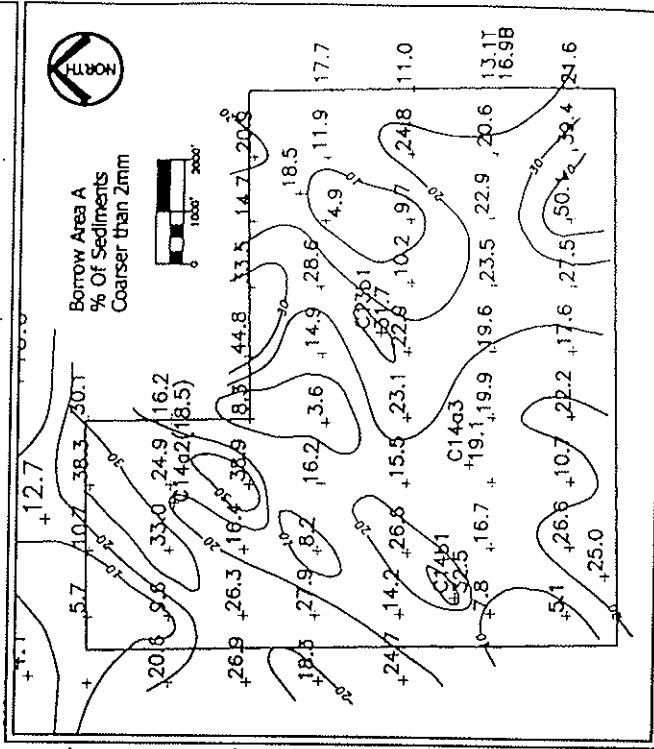 NORTH
Borrow Area A
% Of Sediments
Coarser than 2mm
0 1000' 2000'
12.7
5.7 10.7 38.3 30.1
20.6 9.6 33.0 24.9 16.2
C14a2(18.5)
26.9 26.3 16.4 38.9 8.3 44.8 33.5 14.7 20.9
18.5
18.3 27.9 8.2 16.2 3.6 14.9 28.6 4.9 11.9 17.7
C23b1
31.7
24.7 14.2 26.5 15.5 23.1 22.9 10.2 9.7 24.8 11.0
C14b1
32.5
C14a3
19.1
7.8 16.7 19.9 19.6 23.5 22.9 20.6 13.1T
16.9B
5.1 26.6 10.7 22.2 17.6 27.5 50.1 39.4 21.6
25.0
10 20 30